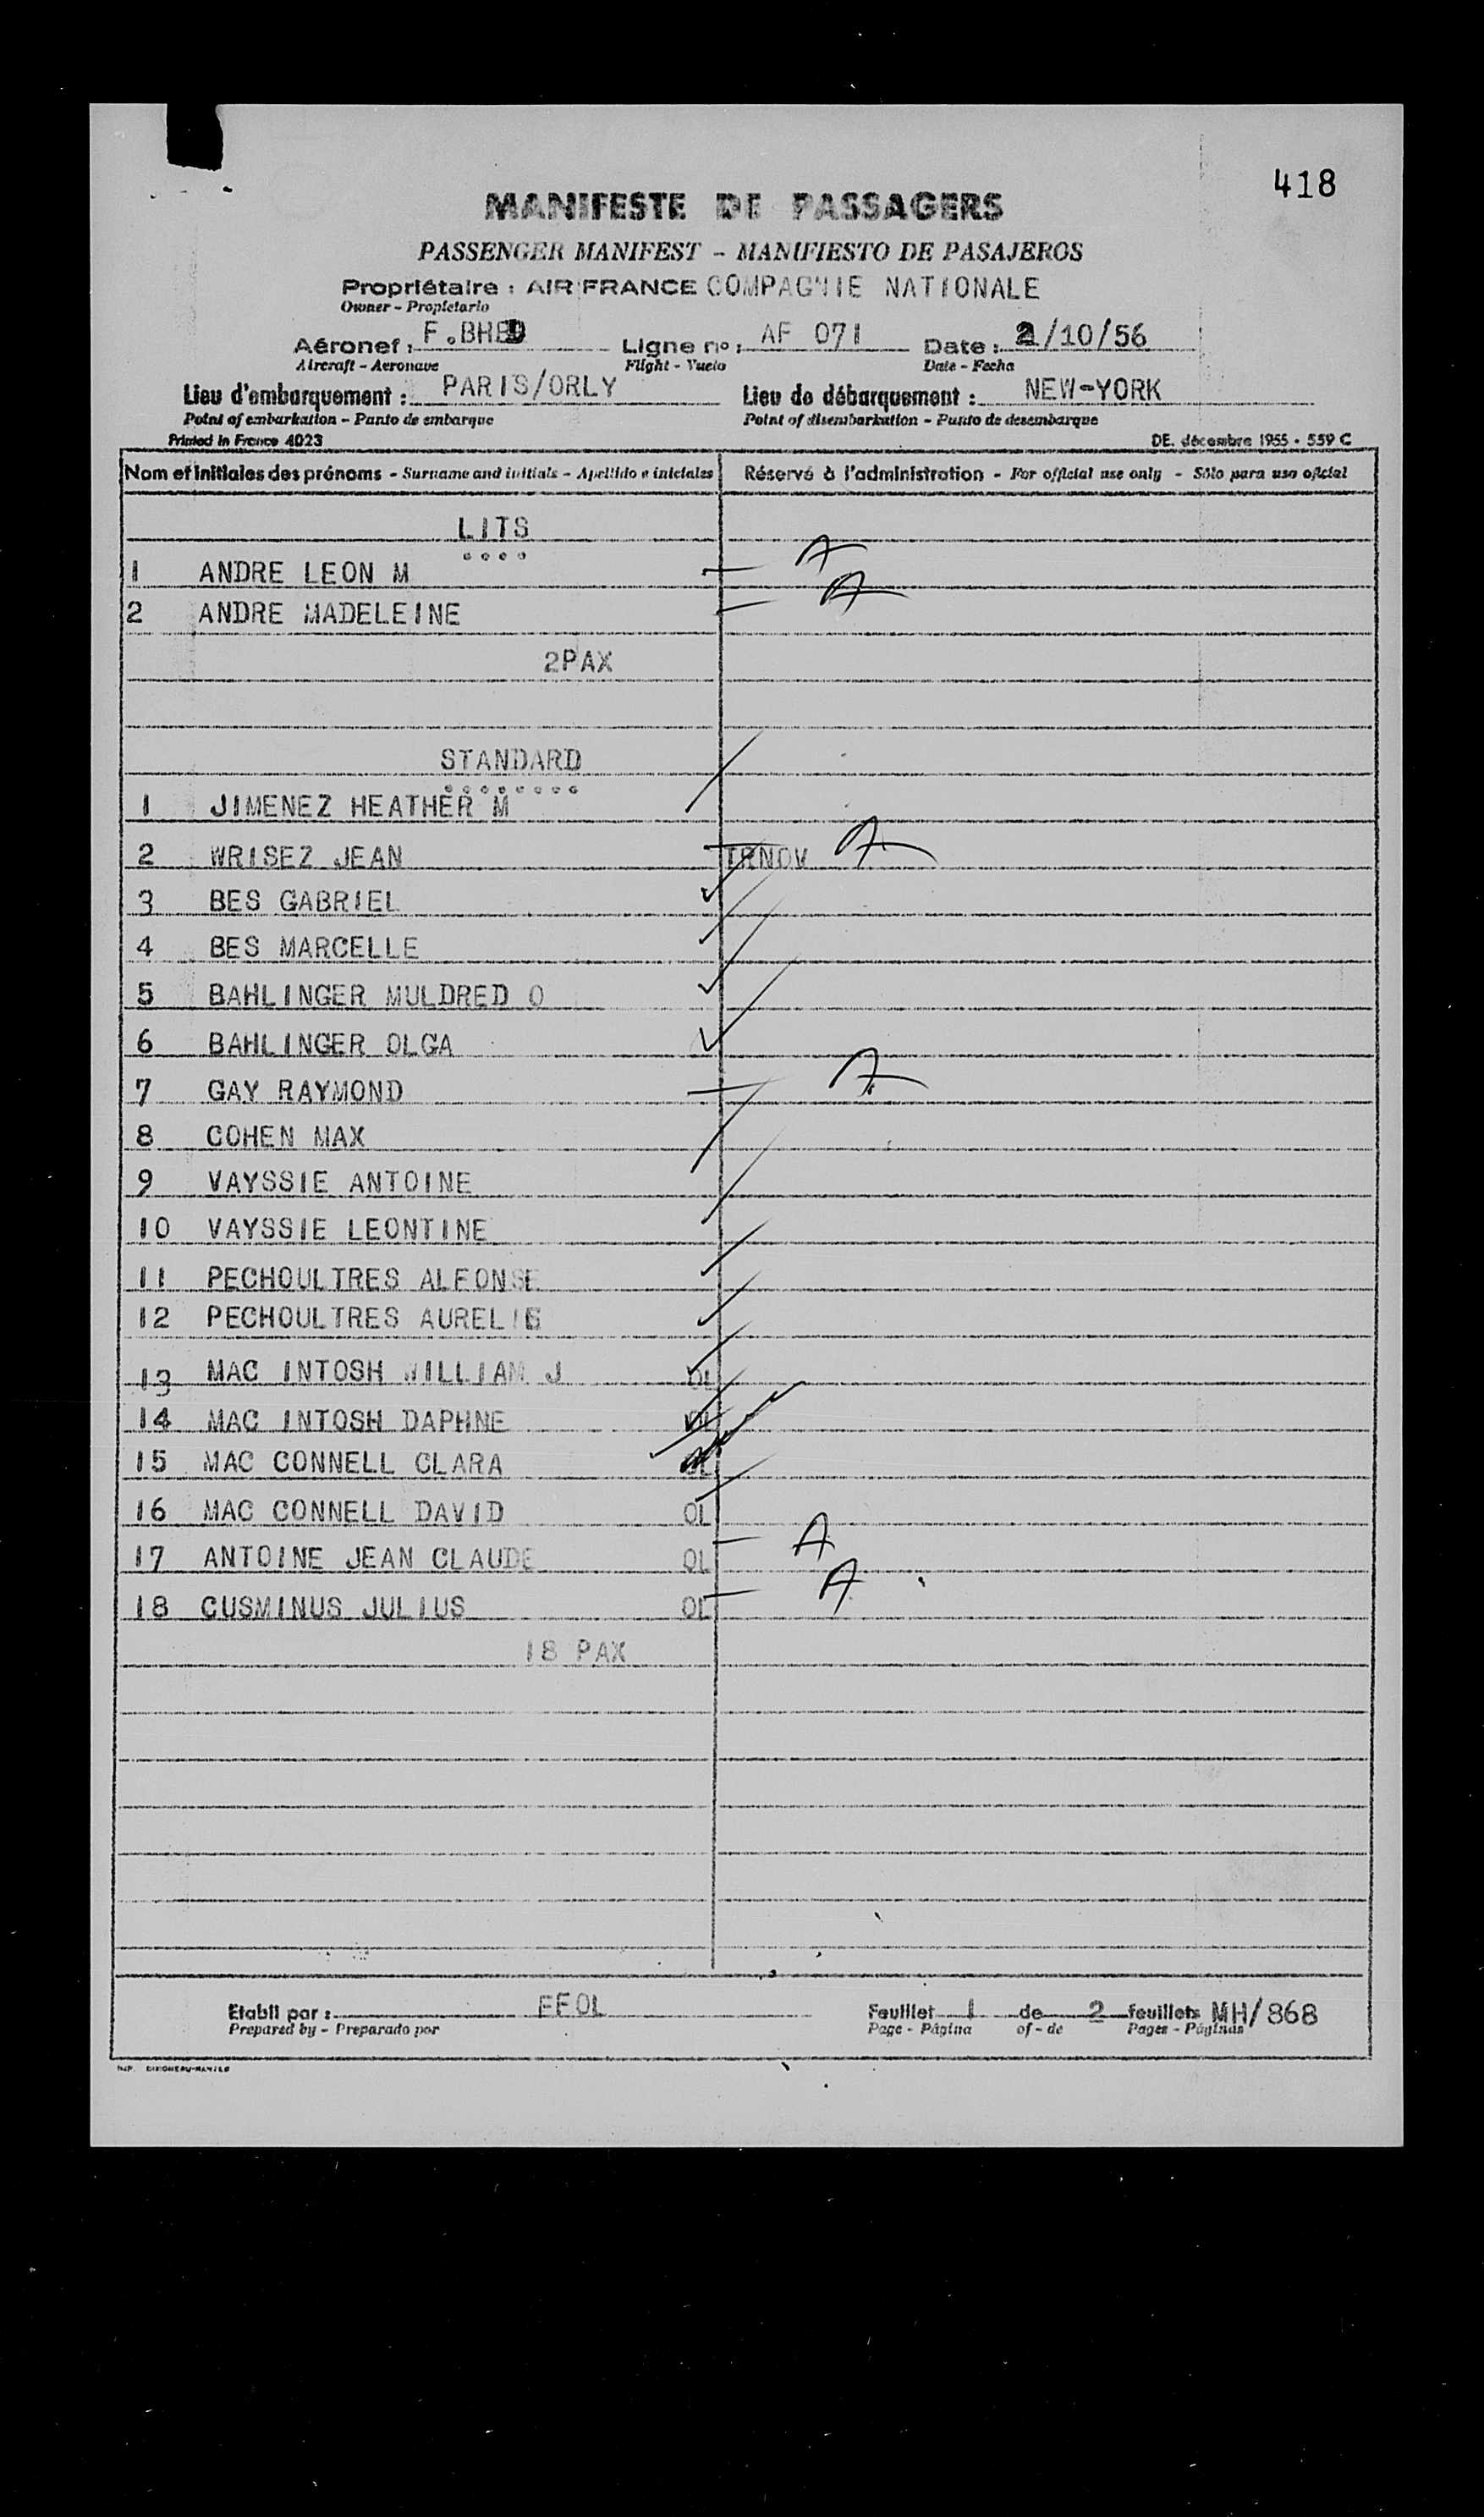 418
MANIFESTE DE PASSAGERS
PASSENGER MANIFEST - MANIFIESTO DE PASAJEROS
Propriétaire : AIR FRANCE COMPAGNIE NATIONALE
Owner - Propietario
Aéronef : F.BHE Ligne no : AF 071 Date : 2/10/56
Aircraft - Aeronave Flight - Vuelo Date - Fecha
Lieu d'embarquement : PARIS/ORLY Lieu de débarquement : NEW-YORK
Point of embarkation - Punto de embarque Point of disembarkation - Punto de desembarque
Printed in France 4023 DE. décembre 1955 - 559 C
Nom et initiales des prénoms - Surname and initials - Apellido e iniciales Réservé à l'administration - For official use only - Sólo para uso oficial
LITS
1 ANDRE LEON M A
2 ANDRE MADELEINE A
2PAX
STANDARD
1 JIMENEZ HEATHER M
2 WRISEZ JEAN TRNOV A
3 BES GABRIEL
4 BES MARCELLE
5 BAHLINGER MULDRED O
6 BAHLINGER OLGA
7 GAY RAYMOND A
8 COHEN MAX
9 VAYSSIE ANTOINE
10 VAYSSIE LEONTINE
11 PECHOULTRES ALFONSE
12 PECHOULTRES AURELIE
13 MAC INTOSH WILLIAM J OL
14 MAC INTOSH DAPHNE OL
15 MAC CONNELL CLARA OL
16 MAC CONNELL DAVID OL
17 ANTOINE JEAN CLAUDE OL A
18 CUSMINUS JULIUS OL A
18 PAX
Etabli par : EFOL Feuillet 1 de 2 feuillets MH/868
Prepared by - Preparado por Page - Página of - de Pages - Páginas